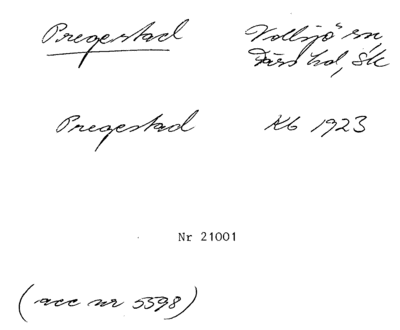 Pregestad Vollsjö sn
Färs hd, Sk
Pregestad Kb 1923
Nr 21001
(acc nr 5598)